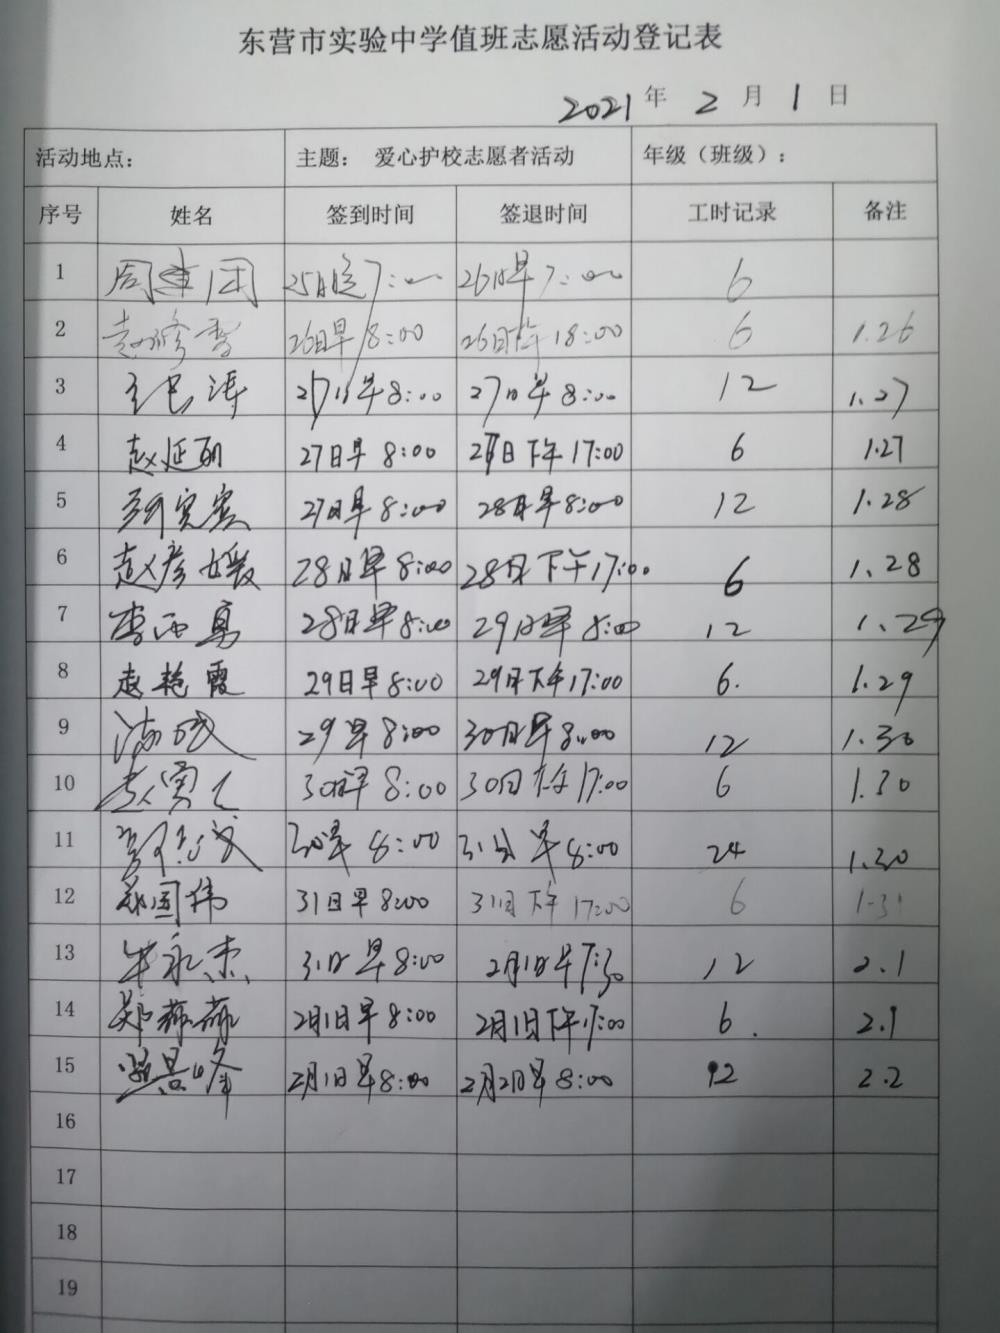 东营市实验中学值班志愿活动登记表
2021年 2月 1日
活动地点： 主题： 爱心护校志愿者活动 年级（班级）：
序号 姓名 签到时间 签退时间 工时记录 备注
1 25日 7:00 26日早7:00 6
2 赵修 26日早8:00 26日下午18:00 6 1.26
3 27日早8:00 27日早8:00 12 1.27
4 赵延丽 27日早8:00 27日下午17:00 6 1.27
5 27日早8:00 28日早8:00 12 1.28
6 赵彦媛 28日早8:00 28日下午17:00 6 1.28
7 李西勇 28日早8:00 29日早8:00 12 1.29
8 赵艳霞 29日早8:00 29日下午17:00 6. 1.29
9 29早8:00 30日早8:00 12 1.30
10 30日早8:00 30日下午17:00 6 1.30
11 30早8:00 31日早8:00 24 1.30
12 国伟 31日早8:00 31日下午17:00 6 1.31
13 牟永杰 31日早8:00 2月1日早7:30 12 2.1
14 郑薇薇 2月1日早8:00 2月1日下午17:00 6. 2.1
15 景峰 2月1日早8:00 2月2日早8:00 12 2.2
16
17
18
19